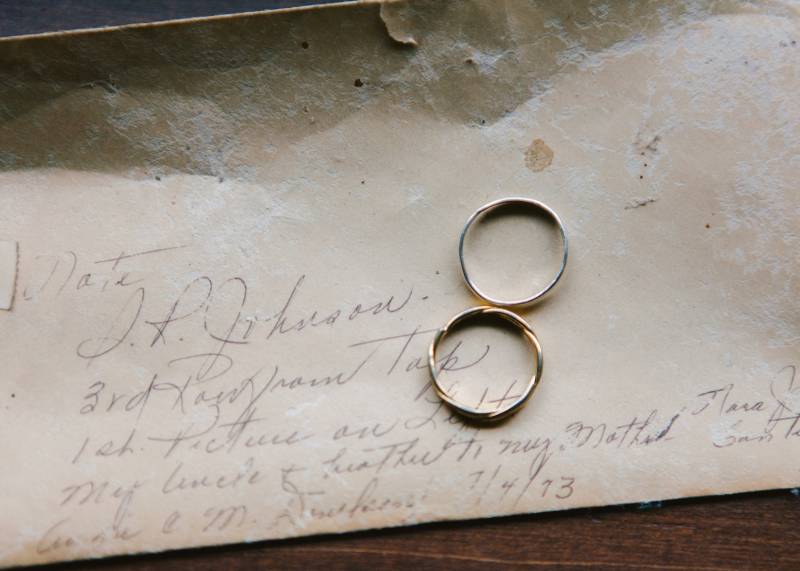 Note
S. P. Johnson.
3rd Row from Top
1st. Picture on Left
My Uncle & brother to my Mother Mara
M. 7/4/73